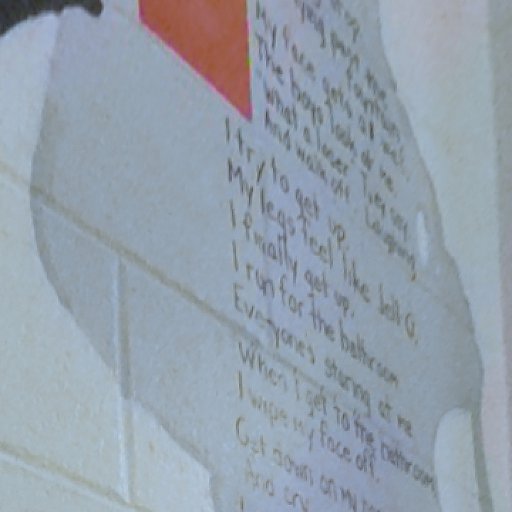 My face gets all wet.
The boys look at me.
"What a loser" They say
And walk off laughing
I try to get up
My legs feel like Jell O.
I finally get up.
I run for the bathroom
Everyones staring at me
When I get to the bathroom
I wipe my face off.
Get down on my
And cry
I